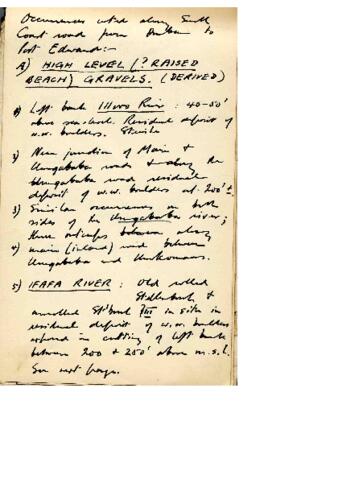 Occurrences noted along South
Coast road from Durban to
Port Edward:-
A) HIGH LEVEL (? RAISED
BEACH) GRAVELS. (DERIVED)
1) Left bank Illovo River : 40-50'
above sea-level. Residual deposit of
w.w. boulders. Sterile
2) Near junction of Main &
Umgababa roads & along the
Umgababa road residual
deposit of w.w. boulders at 200' ±.
3) Similar occurrences on both
sides of the Umgababa river;
these outcrops between along
4) main (inland) road between
Umgababa and Umkomaas.
5) IFAFA RIVER : Old rolled
Stellenbosch &
unrolled St'bosch III in situ in
residual deposit of w.w. boulders
exposed in cutting of left bank
between 200 & 250' above m.s.l.
See next page.